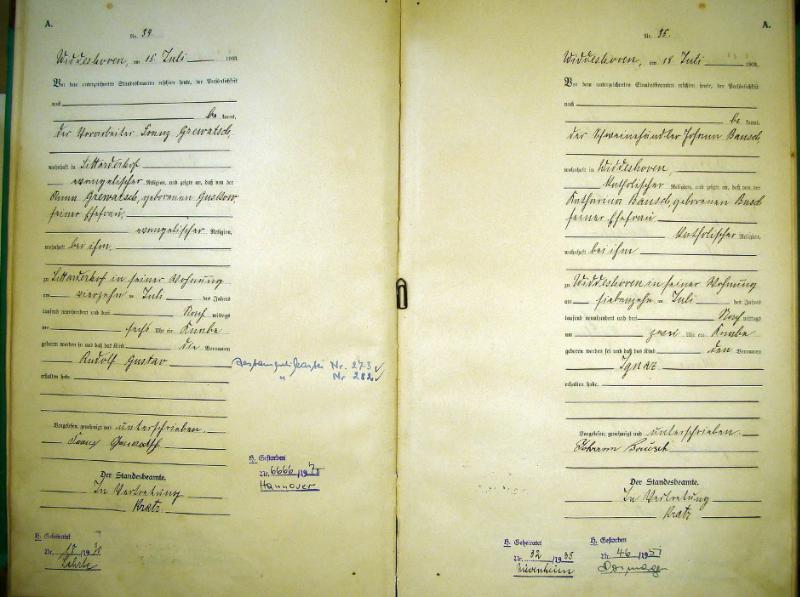 A.
Nr. 34.
Widdeshoven, am 15. Juli 1903.
Vor dem unterzeichneten Standesbeamten erschien heute, der Persönlichkeit
nach
be kannt,
der Vorarbeiter Franz Grewatsch,
wohnhaft in
evangelischer Religion, und zeigte an, daß von der
Anna Grewatsch, geborenen Gustow
seiner Ehefrau,
evangelischer Religion,
wohnhaft bei ihm
zu in seiner Wohnung
am vierzehn ten Juli des Jahres
tausend neunhundert und drei Nach mittags
um sechs Uhr ein Knabe
geboren worden sei und daß das Kind die Vornamen
Rudolf Gustav
erhalten habe.
Nr. 273
" Nr 282
Vorgelesen, genehmigt und unterschrieben.
Franz Grewatsch
Der Standesbeamte.
In Vertretung
Kratz
H. Gestorben
Nr. 6666/1975
Hannover
H. Geheiratet
Nr.
Lehrte
A.
Nr. 35.
Widdeshoven, am 18 Juli 1903.
Vor dem unterzeichneten Standesbeamten erschien heute, der Persönlichkeit
nach
be kannt,
der Schweinehändler Johann Bausch,
wohnhaft in Widdeshoven,
katholischer Religion, und zeigte an, daß von der
Katharina Bausch, geborenen Busch
seiner Ehefrau
katholischer Religion,
wohnhaft bei ihm
zu Widdeshoven in seiner Wohnung
am siebenzehn ten Juli des Jahres
tausend neunhundert und drei Nach mittags
um zwei Uhr ein Knabe
geboren worden sei und daß das Kind den Vornamen
Ignaz
erhalten habe.
Vorgelesen, genehmigt und unterschrieben.
Johann Bausch
Der Standesbeamte.
In Vertretung
Kratz
H. Geheiratet
Nr. 32/1935
Nievenheim
H. Gestorben
Nr. 46/1951
Dormagen